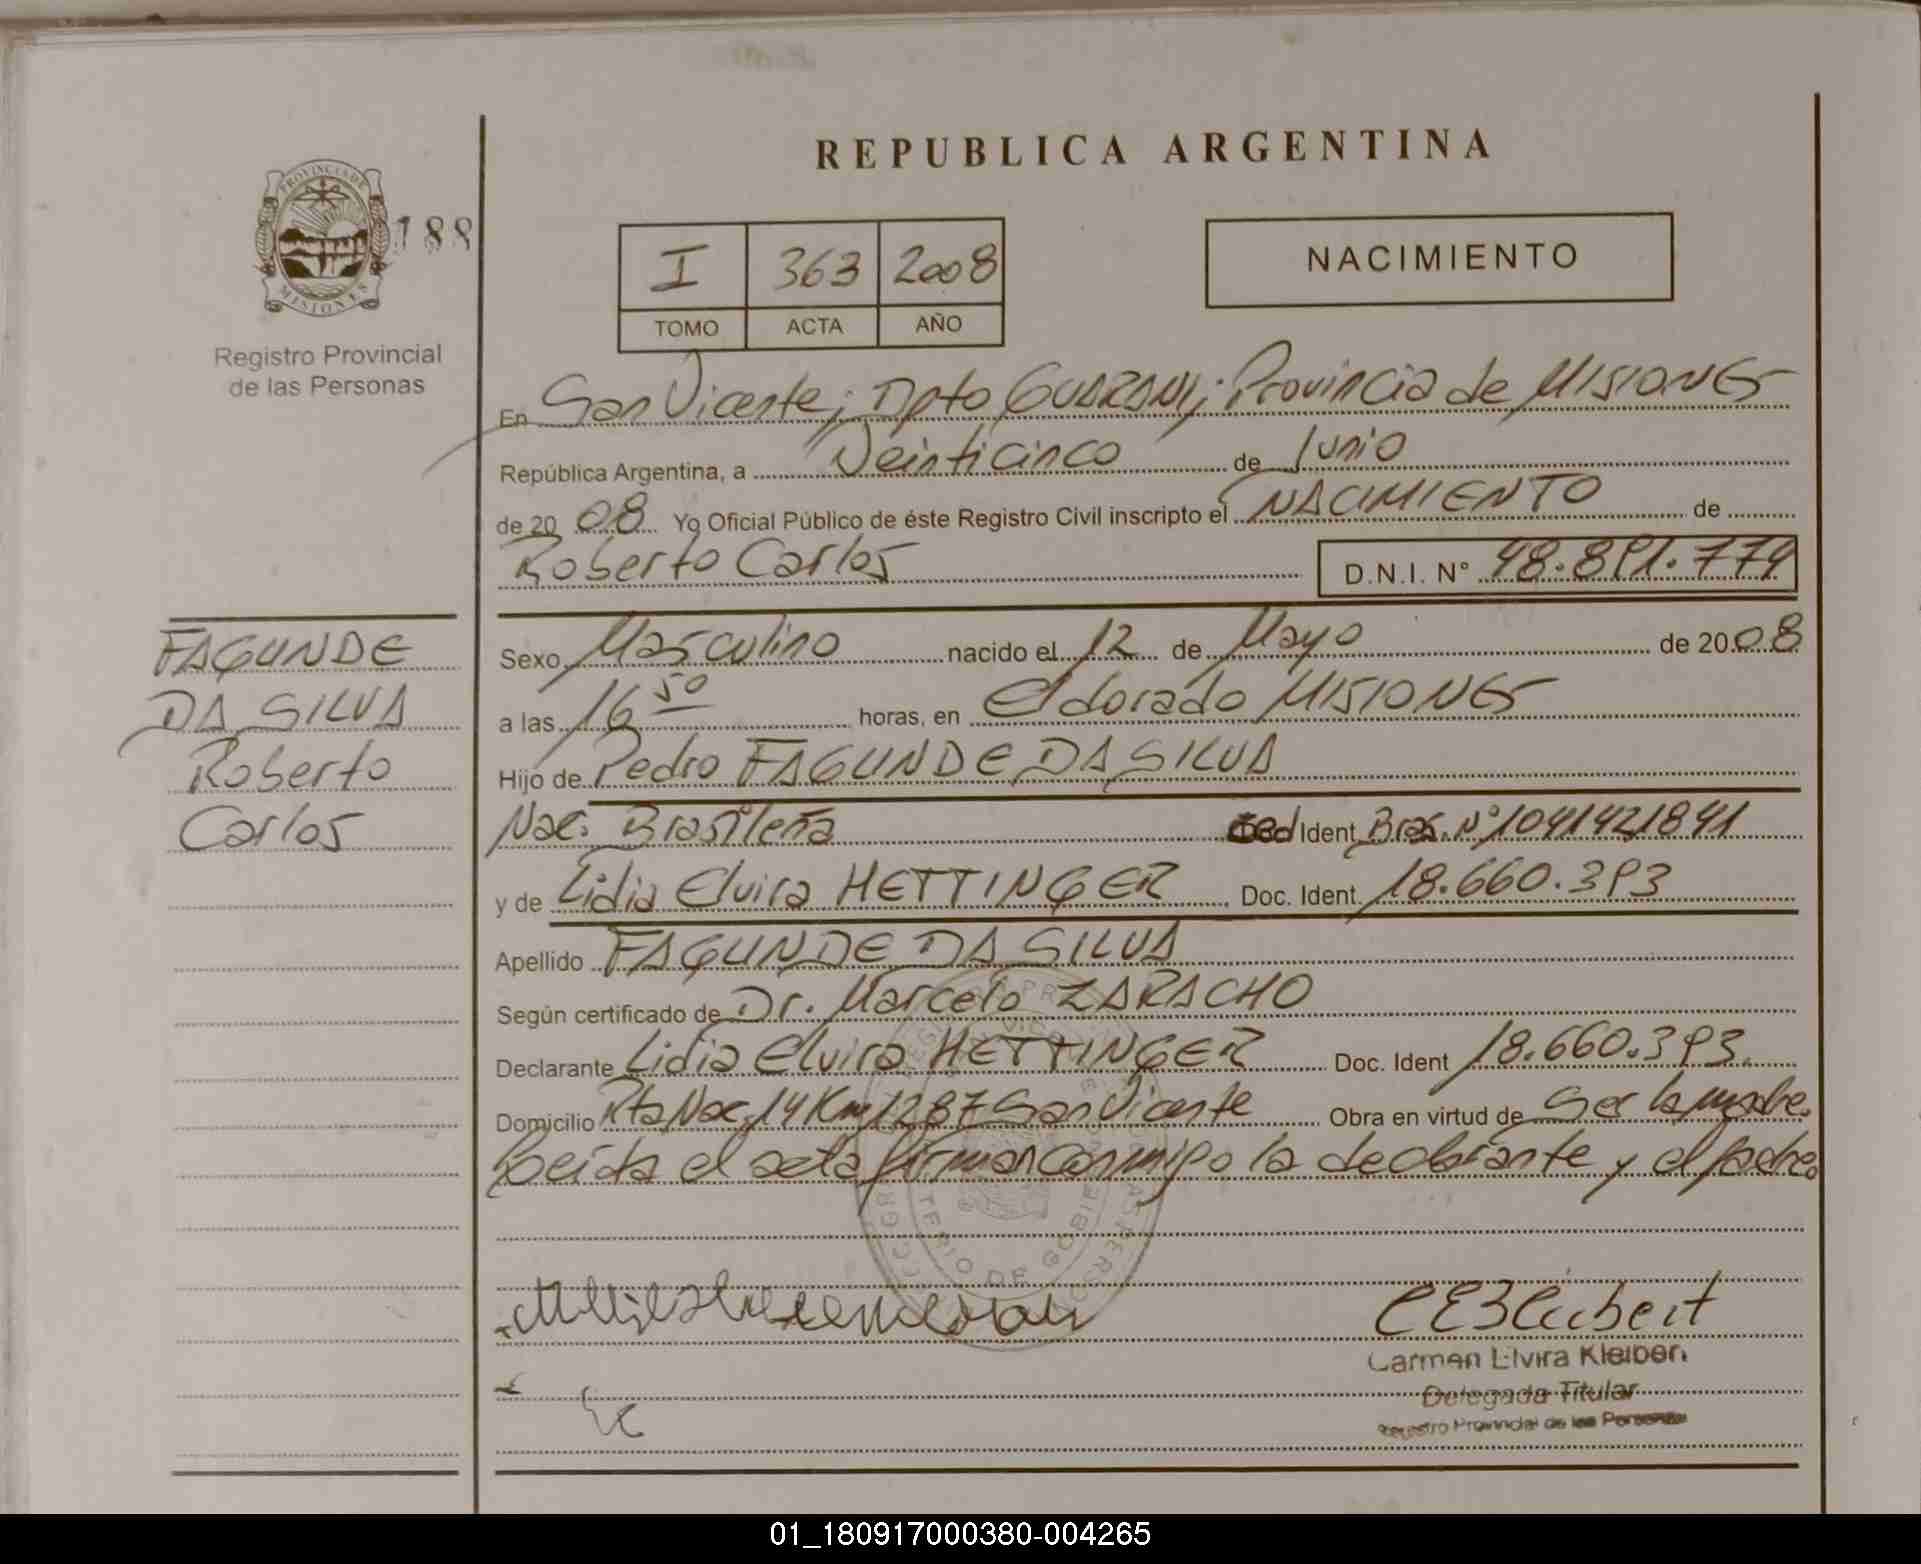 REPUBLICA ARGENTINA
PROVINCIA DE
MISIONES
188
Registro Provincial
de las Personas
I 363 2008
TOMO ACTA AÑO
NACIMIENTO
En San Vicente; Dpto GUARANI; Provincia de MISIONES
República Argentina, a Veinticinco de Junio
de 2008 Yo Oficial Público de éste Registro Civil inscripto el NACIMIENTO de
Roberto Carlos D.N.I. Nº 48.891.774
FAGUNDE
DA SILVA
Roberto
Carlos
Sexo Masculino nacido el 12 de Mayo de 2008
a las 16 50 horas, en Eldorado MISIONES
Hijo de Pedro FAGUNDE DA SILVA
Nac. Brasileña Ced Ident Bras. Nº 1041421841
y de Lidia Elvira HETTINGER Doc. Ident. 18.660.393
Apellido FAGUNDE DA SILVA
Según certificado de Dr. Marcelo ZARACHO
Declarante Lidia Elvira HETTINGER Doc. Ident 18.660.393.
Domicilio Rta Nac. 14 Km 1287 San Vicente Obra en virtud de Ser la madre.
Leída el acta firman conmigo la declarante y el padre.
Carmen Elvira Kleibert
Delegada Titular
Registro Provincial de las Personas
01_180917000380-004265